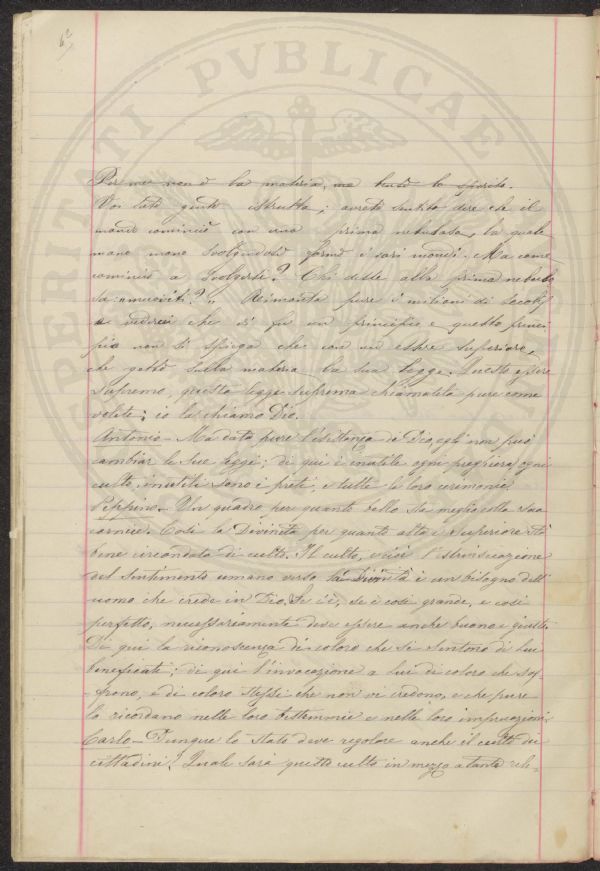 62
PERITATI PVBLICAE
Per me non è la materia, ma tutto lo spirito.
Voi tato giusto istrutta; avrete sentito dire che il
mondo cominciò con una prima nebulosa, la quale
mano mano svolgendosi formò i vari mondi. Ma come
cominciò a svolgersi? Chi dette alla prima nebulo
sa Rimonta pure i milioni di secoli,
e vedrai che vi fu un principio e questo princi
pio non si spiega che con un essere superiore,
che gettò sulla materia la sua legge. Questo essere
supremo, questa legge suprema chiamatela pure come
volete; io la chiamo Dio.
Antonio - Ma data pure l'esistenza di Dio, egli non può
cambiar le sue leggi; di qui è inutile ogni preghiera, ogni
culto, inutili sono i preti, e tutte le loro cerimonie.
Peppino - Un quadro per quanto bello sta meglio colla sua
cornice. Così la Divinità per quanto alta e superiore sta
bene circondata di culto. Il culto, ossia
del sentimento umano verso la Divinità è un bisogno dell'
uomo che crede in Dio. Se è così grande, e così
perfetto, necessariamente deve essere anche buono e giusto.
Di qui la riconoscenza di coloro che si sentono di lui
beneficati; di qui l'invocazione a lui di coloro che sof-
frono, e di coloro stessi che non vi credono, e che pure
lo ricordano nelle loro bestemmie e nelle loro imprecazioni.
Carlo - Dunque lo Stato deve regolare anche il culto dei
cittadini? Quale sarà questo culto in mezzo a tante reli-